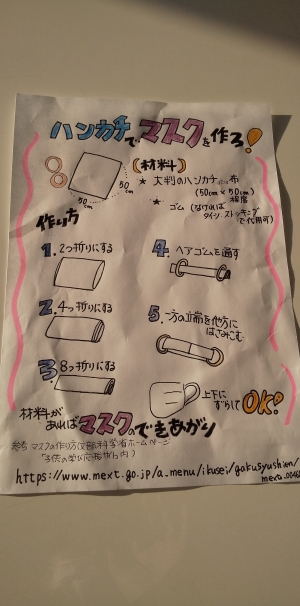 ハンカチでマスクを作ろう!
(材料)
★ 大判のハンカチ or 布
(50cm × 50cm)
程度
★ ゴム (なければ
タイツ・ストッキング
で代用可)
50cm
50cm
作り方
1. 2つ折りにする
2. 4つ折りにする
3. 8つ折りにする
4. ヘアゴムを通す
5. 一方の端を他方に
はさみこむ
上下に
ずらして OK!
材料が
あればマスクのできあがり
参考 マスクの作り方(文部科学省ホームページ
「子供の学び応援サイト内」)
https://www.mext.go.jp/a_menu/ikusei/gakusyushien/
mext_00460